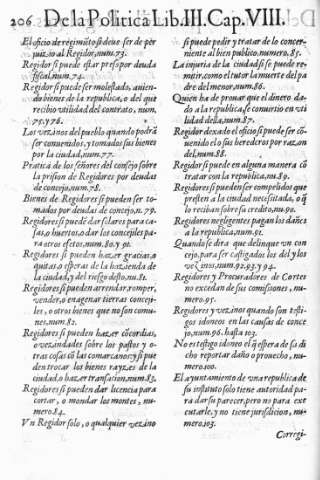 206 De la Politica Lib. III. Cap. VIII.
El oficio de regimiẽto si deue ser de per
juizio al Regidor, num. 73.
Regidor si puede estar preso por deuda
fiscal, num. 74.
Regidor si puede ser molestado, auien-
do bienes de la republica, o del que
recibio vtilidad del contrato, num.
75. y 76.
Los vezinos del pueblo quando podrã
ser conuenidos, y tomados sus bienes
por la ciudad, num. 77.
Pratica de los señores del consejo sobre
la prision de Regidores por deudas
de concejo, num. 78.
Bienes de Regidores si pueden ser to-
mados por deudas de concejo, n. 79.
Regidores si puedẽ dar solares para ca-
sas, o huertos, o dar los concejiles pa-
ra otros efetos, num. 80. y 91.
Regidores si pueden hazer gracias, o
quitas, o esperas de la hazienda de
la ciudad, y del riesgo desto, nu. 81.
Regidores si pueden arrendar, romper,
vender, o enagenar tierras conceji-
les, o otros bienes que no son comu-
nes, num. 82.
Regidores si pueden hazer cõcordias,
o vezindades sobre los pastos y o-
tras cosas cõ las comarcanos, y si pue
den trocar los bienes rayzes de la
ciudad, o hazer transacion, num. 83.
Regidores si pueden dar licencia para
cortar, o mondar los montes, nu-
mero. 84.
Vn Regidor solo, o qualquier vezino
si puede pedir y tratar de lo concer-
niente al bien publico, num. 85.
La injuria de la ciudad si se puede re-
mitir, como el tutor la muerte del pa
dre del menor, num. 86.
Quien ha de prouar que el dinero da-
do a la republica, se conuertio en vti
lidad della, num. 87.
Regidor dexado el oficio si puede ser cõ-
uenido el o sus herederos por razon
del, num. 88.
Regidor si puede en alguna manera cõ
tratar con la republica, nu. 89.
Regidores si pueden ser compelidos que
presten a la ciudad necessitada, o q̃
lo reciban sobre su credito, nu. 90.
Regidores negligentes pagan los daños
a la republica, num. 91.
Quando se dira que delinque vn con
cejo, para ser castigados los del y los
vezinos, num. 92. 93. y 94.
Regidores y Procuradores de Cortes
no excedan de sus comissiones, nu-
mero. 95.
Regidores y vezinos quando son testi-
gos idoneos en las causas de conce-
jo, num. 96. hasta 103.
No es testigo idoneo el q̃ espera de su di
cho reportar daño o prouecho, nu-
mero. 100.
El ayuntamiento de vna republica de
su instituto solo tiene autoridad pa-
ra dar su parecer, pero no para exe
cutarle, y no tiene jurisdicion, nu-
mero. 103.
Corregi-